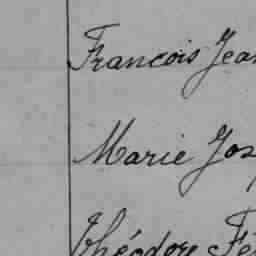 Francois Jean
Marie Jos
Théodore Fé